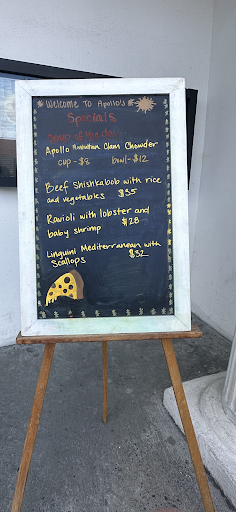 Welcome To Apollo's
Specials
Soup of the day...
Apollo Manhattan Clam Chowder
cup - $8 bowl - $12
Beef Shishkabob with rice
and vegetables $35
Ravioli with lobster and
baby shrimp $28
Linguini Mediterranean with
Scallops $32